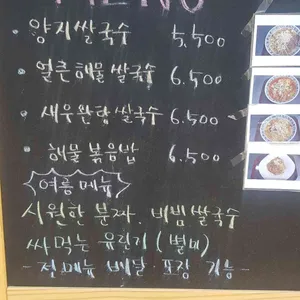 MENU
· 양지쌀국수 5,500
· 얼큰해물쌀국수 6.500
· 새우완탕쌀국수 6.500
· 해물볶음밥 6.500
여름메뉴
시원한 분짜. 비빔쌀국수
싸먹는 유린기 (별미)
- 전메뉴 배달·포장 가능 -